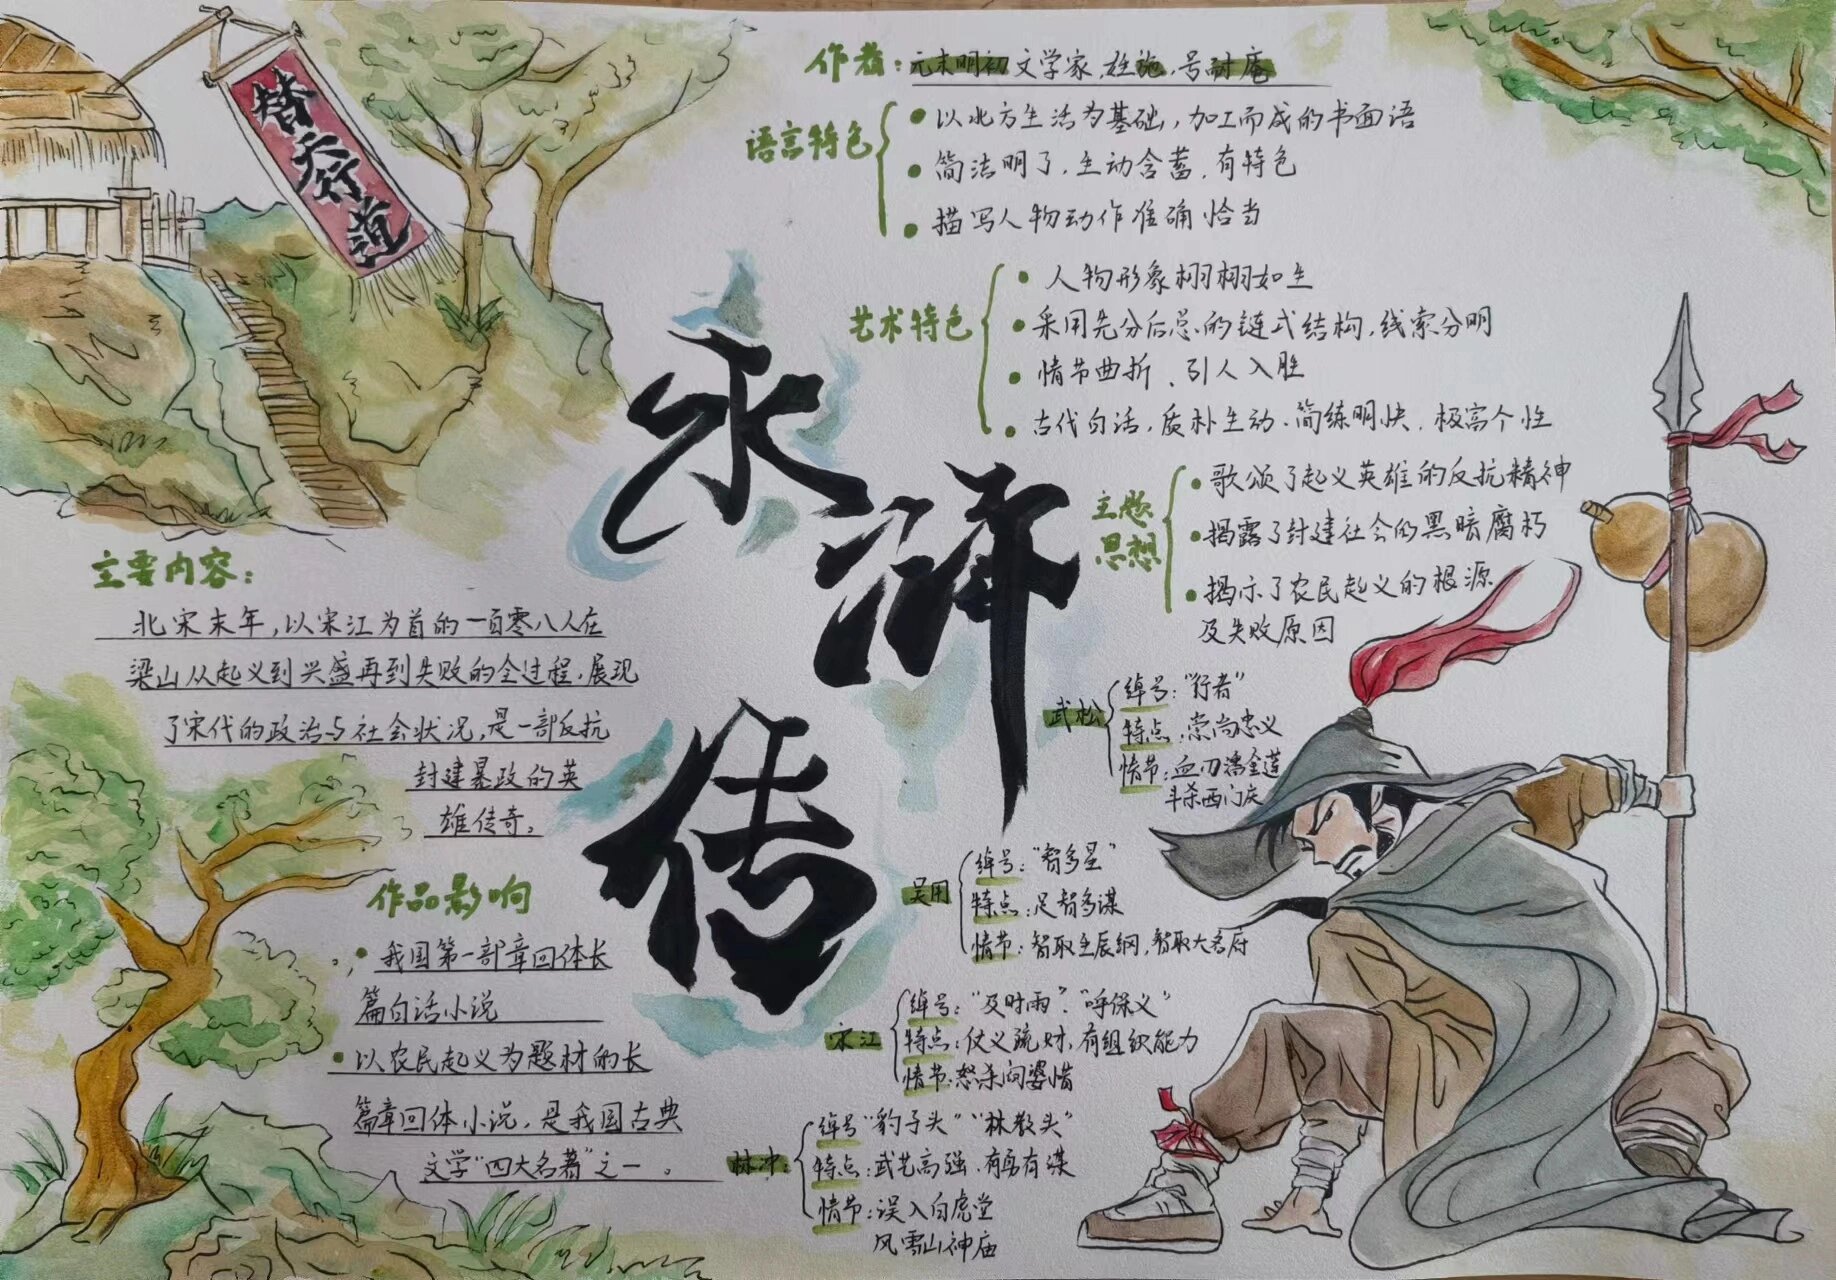 替天行道
水浒传
作者：元末明初文学家，姓施，号耐庵
语言特色
以北方生活为基础，加工而成的书面语
简洁明了，生动含蓄，有特色
描写人物动作准确恰当
艺术特色
人物形象栩栩如生
采用先分后总的链式结构，线索分明
情节曲折、引人入胜
古代白话，质朴生动、简练明快，极高个性
主题
思想
歌颂了起义英雄的反抗精神
揭露了封建社会的黑暗腐朽
揭示了农民起义的根源
及失败原因
主要内容：
北宋末年，以宋江为首的一百零八人在
梁山从起义到兴盛再到失败的全过程，展现
了宋代的政治与社会状况，是一部反抗
封建暴政的英
雄传奇。
作品影响
我国第一部章回体长
篇白话小说
以农民起义为题材的长
篇章回体小说，是我国古典
文学“四大名著”之一。
武松
绰号：“行者”
特点：崇尚忠义
情节：血刃潘金莲
斗杀西门庆
吴用
绰号：“智多星”
特点：足智多谋
情节：智取生辰纲，智取大名府
宋江
绰号：“及时雨”、“呼保义”
特点：仗义疏财，有组织能力
情节：怒杀阎婆惜
林冲：
绰号“豹子头”“林教头”
特点：武艺高强、有勇有谋
情节：误入白虎堂
风雪山神庙